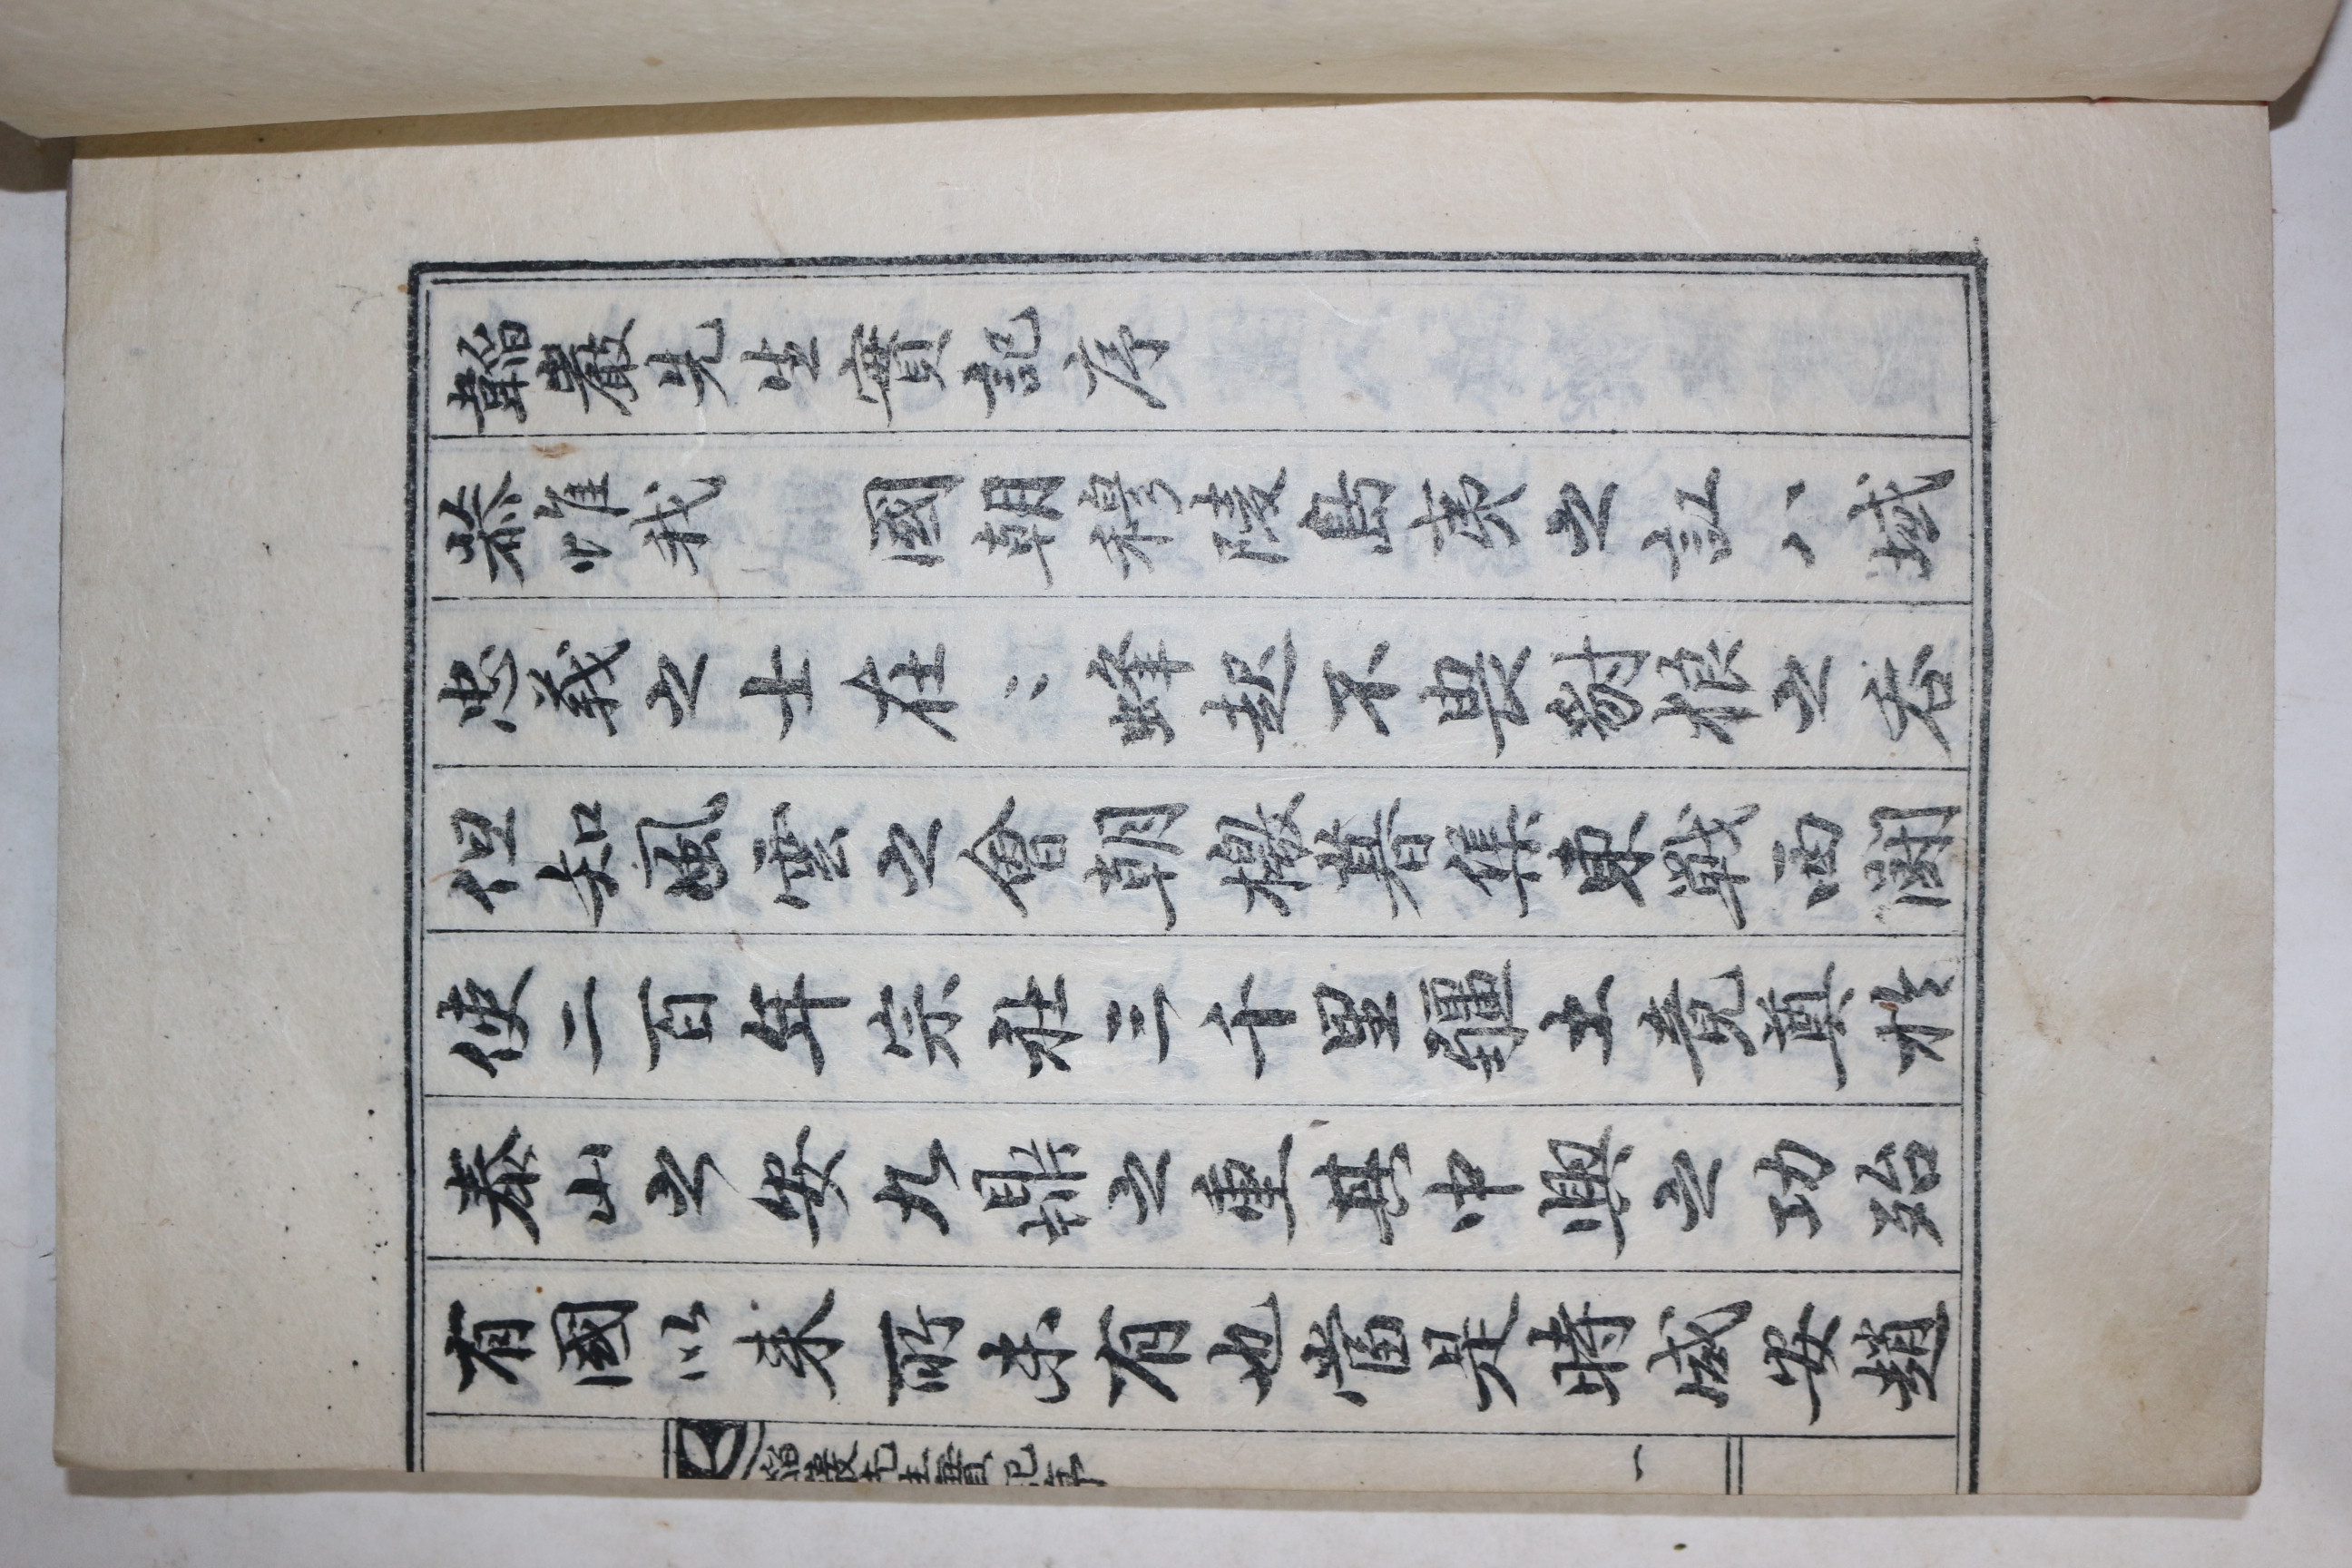 韜巖先生實記序
恭惟我 國朝穆陵島夷之訌八域
忠義之士在〻蜂起不畏豺狼之吞
但知風雲之會朝檄暮集東戰西鬪
使二百年宗社三千里疆土竟奠於
泰山之安九鼎之重其中興之功殆
有國以来所未有也當是時咸安趙
韜巖先生實記序
一